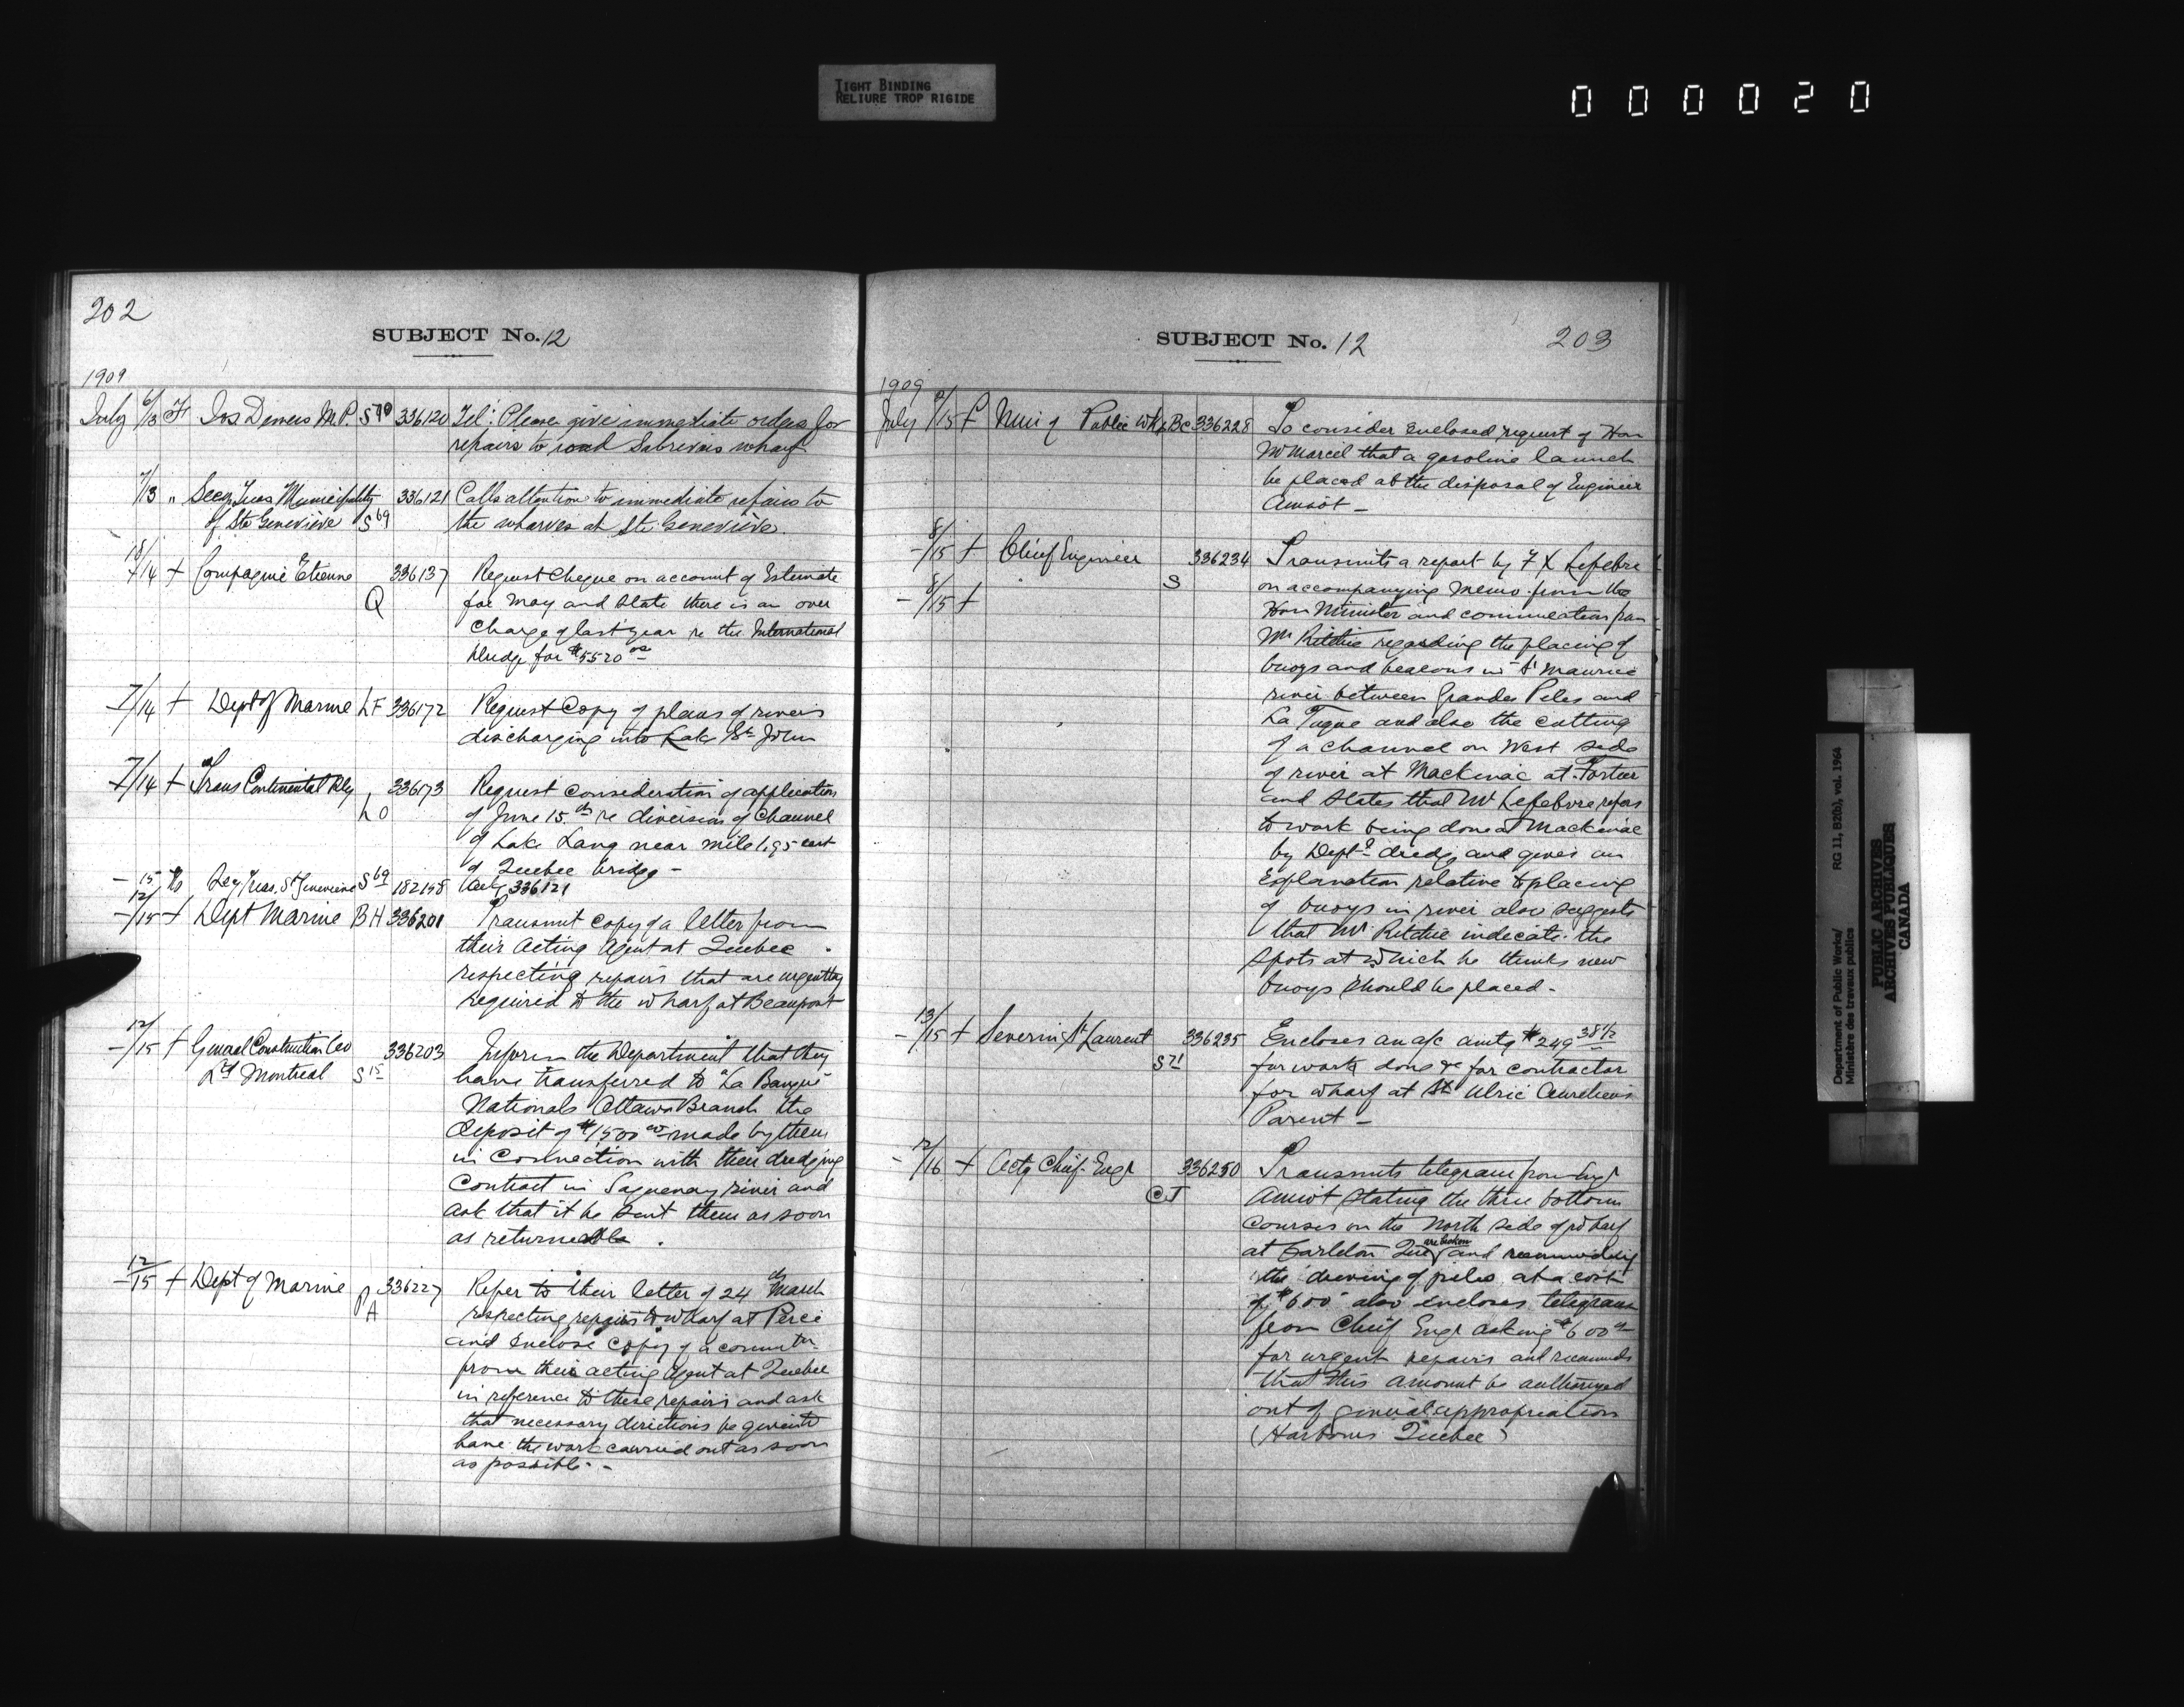 TIGHT BINDING
RELIURE TROP RIGIDE
000020
202
SUBJECT No. 12
1909
July 6/13 Jos. Demers M.P. S 336120 Tel: Please give immediate orders for
repairs to road Sabrevois wharf
7/13 " Secy Treas Municipality 336121 Calls attention to immediate repairs to
of Ste Geneviève S69 the wharves at Ste Geneviève.
/14 + Compagnie Etienne 336137 Request Cheque on account of Estimate
Q for May and state there is an over
charge of last year re the International
dredge for $5520 00
7/14 + Dept of Marine LF 336172 Request Copy of plans of rivers
discharging into Lake St John
7/14 + Trans Continental Rly 336173 Request consideration of application
LO of June 15th re diversion of Channel
of Lake Lang near mile 1.95 east
of Quebec bridge -
- 15 Secy Treas. Ste Genevieve S69 182158 336121
12/15 + Dept Marine BH 336201 Transmit copy of a letter from
their Acting Agent at Quebec
respecting repairs that are urgently
required to the wharf at Beauport
12/15 + General Construction Co 336203 Inform the Department that they
Ltd Montreal S15 have transferred to "La Banque
Nationale Ottawa Branch the
deposit of $1,500 00 made by them
in Connection with their dredging
Contract in Saguenay river and
ask that it be sent them as soon
as returnable.
12/15 + Dept of Marine 336227 Refer to their letter of 24th March
PA respecting repairs to wharf at Percé
and enclose copy of a commtn
from their acting Agent at Quebec
in reference to these repairs and ask
that necessary directions be given to
have the work carried out as soon
as possible. -
SUBJECT No. 12 203
1909
July /15 + Min of Public Wks BC 336228 To consider enclosed request of Hon
Mr Marcil that a gasoline launch
be placed at the disposal of Engineer
Amiot -
8/15 + Chief Engineer 336234 Transmits a report by F X Lefebvre
S on accompanying memo. from the
8/15 + Hon Minister and commucation from
Mr Ritchie regarding the placing of
buoys and beacons in St Maurice
river between Grandes Piles and
La Tuque and also the cutting
of a channel on West side
of river at Mackinac at Fortier
and states that Mr Lefebvre refers
to work being done at Mackinac
by Dept. dredge and gives an
Explanation relative to placing
of buoys in river also suggests
that Mr Ritchie indicate the
spots at which he thinks new
buoys should be placed -
13/15 + Severin St Laurent 336235 Encloses an a/c amtg $249 38 1/2
S71 for work done &c for contractor
for wharf at St Ulric Aurelien
Parent -
12/16 + Actg Chief Engr 336250 Transmits telegram from Engr
CJ Amiot stating the three bottom
Courses on the North side of wharf
at Carleton Que are broken and recommending
the driving of piles at a cost
of $600 also encloses telegram
from Chief Engr asking $600
for urgent repairs and recommends
that this amount be authorized
out of general appropriation
(Harbours Quebec)
Department of Public Works/ RG 11, B2(b), vol. 1964
Ministère des travaux publics
PUBLIC ARCHIVES
ARCHIVES PUBLIQUES
CANADA